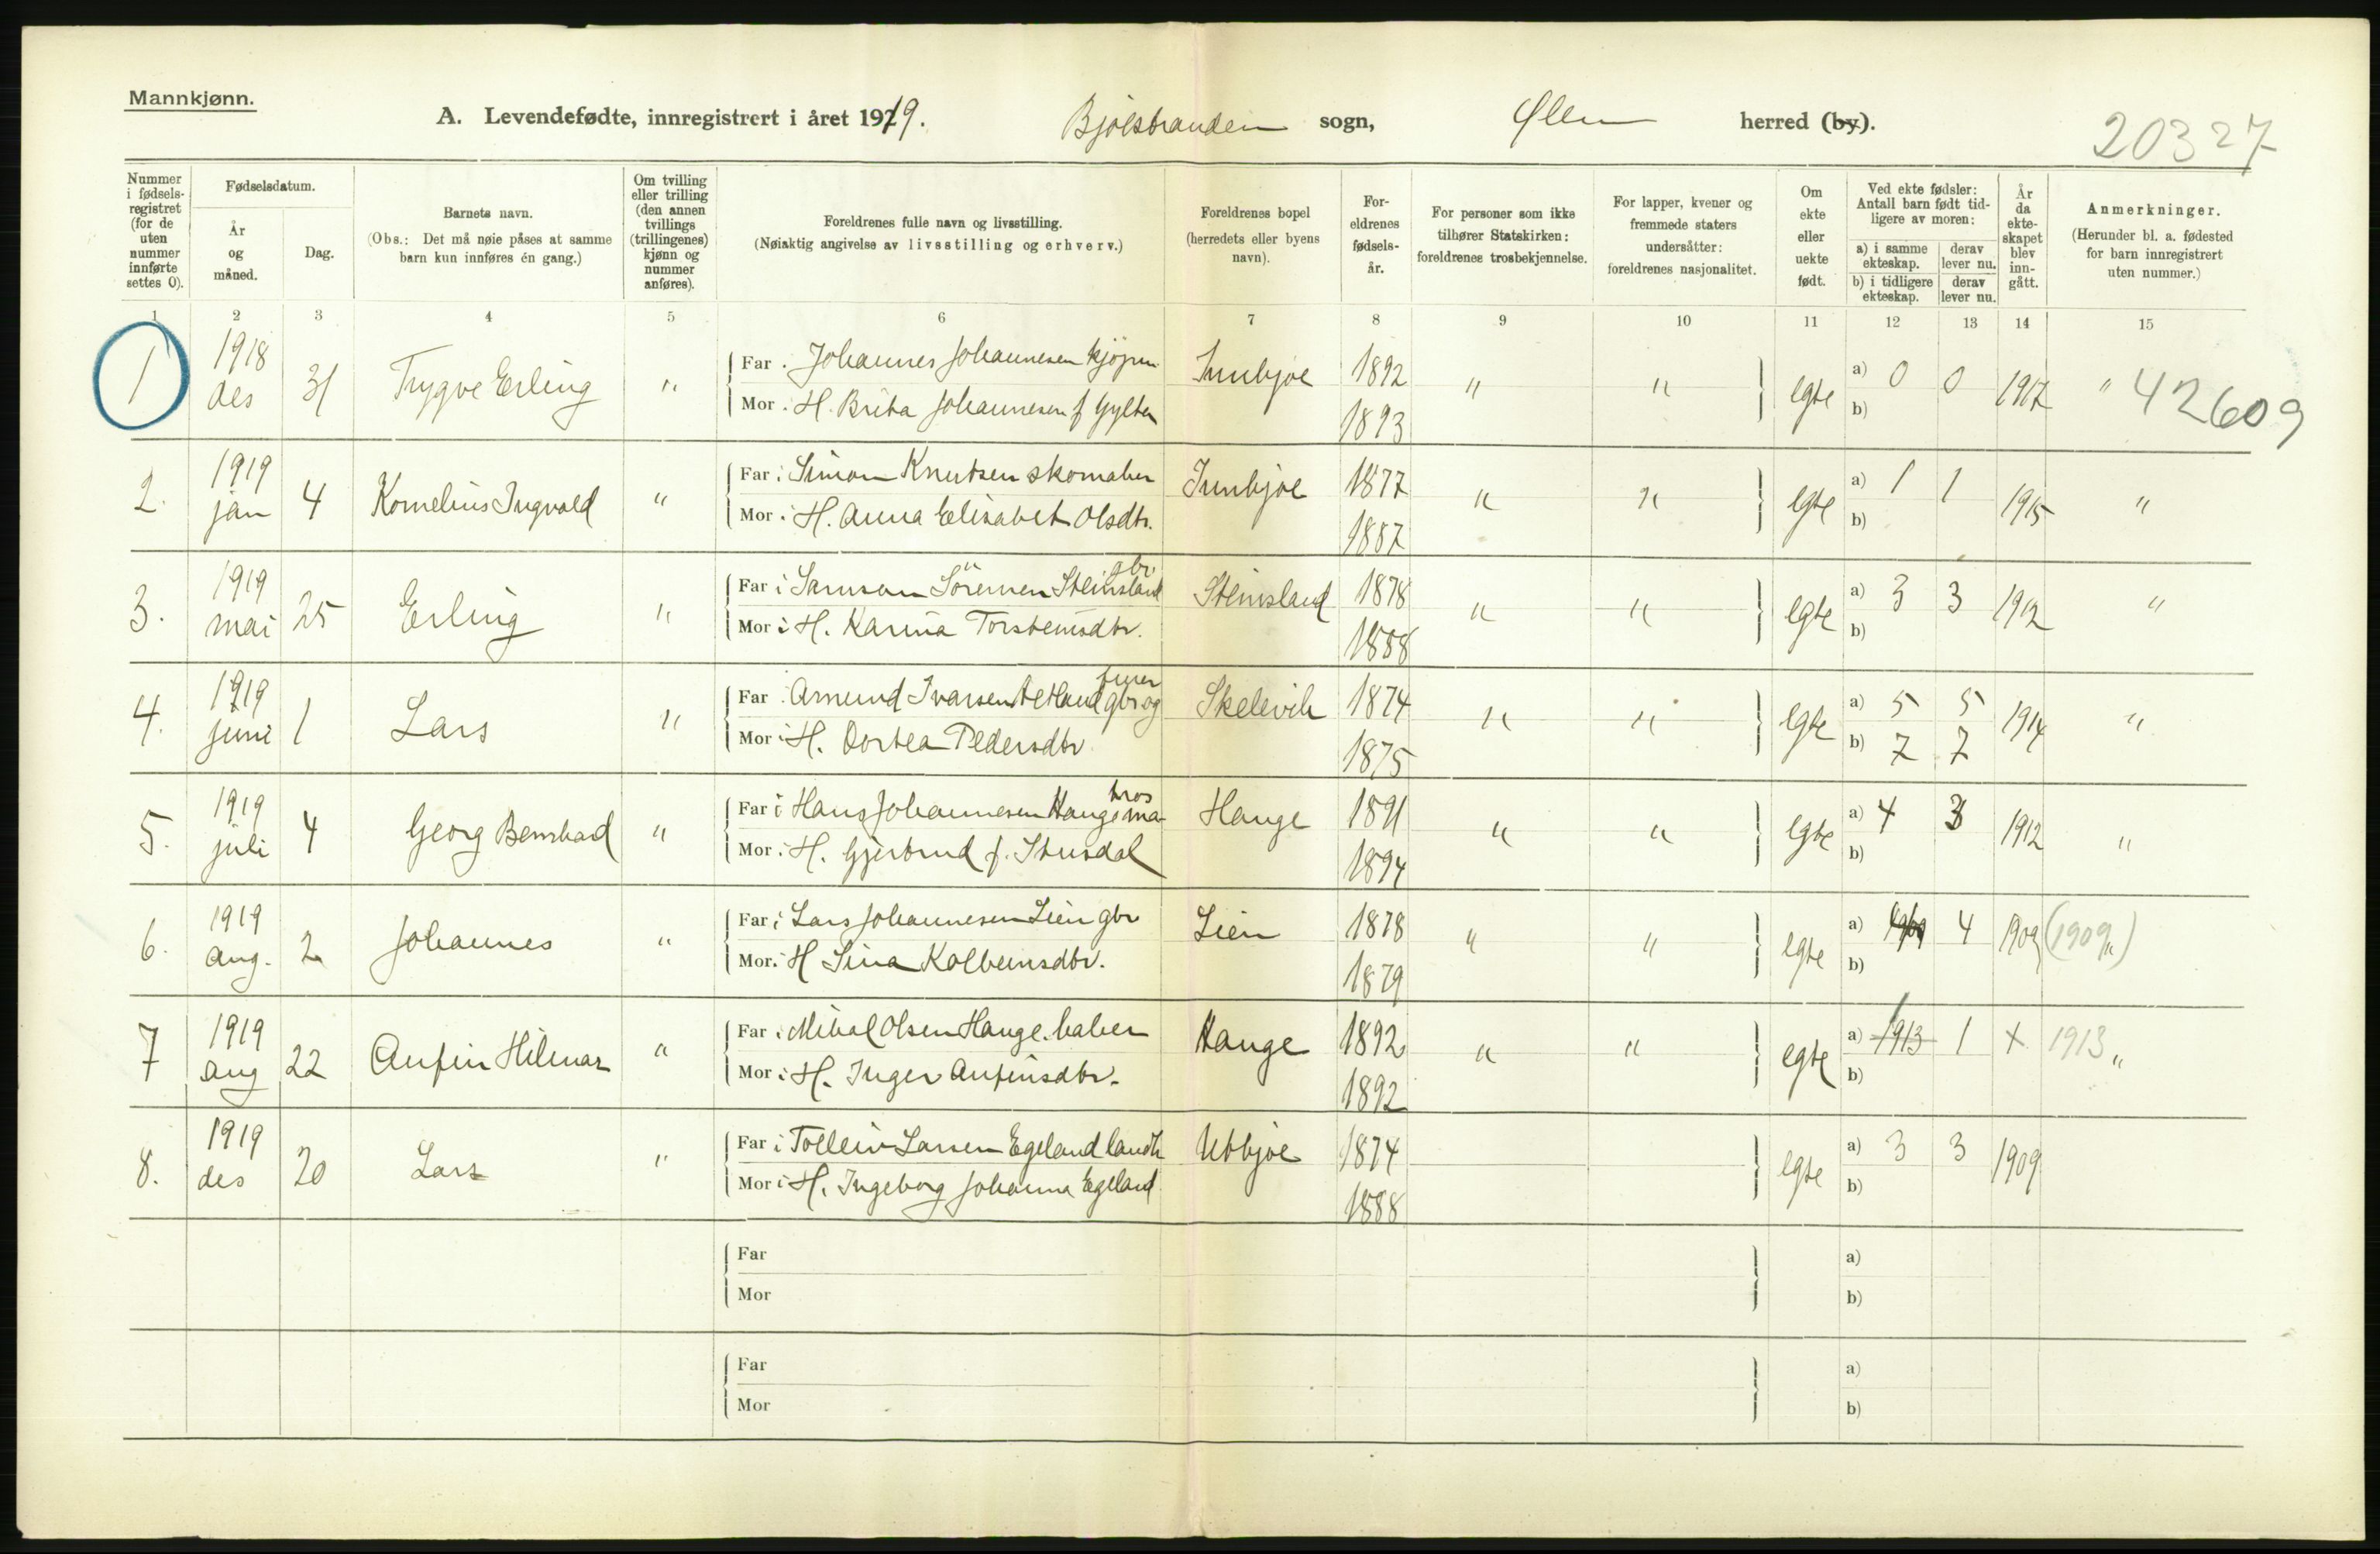 Mannkjønn.
A. Levendefødte, innregistrert i året 1919. Bjoestranden sogn, Ølen herred (by).
20327
Nummer i fødselsregistret (for de uten nummer innførte settes 0).
Fødselsdatum.
År og måned.
Dag.
Barnets navn.
(Obs.: Det må nøie påses at samme barn kun innføres én gang.)
Om tvilling eller trilling (den annen tvillings (trillingenes) kjønn og nummer anføres).
Foreldrenes fulle navn og livsstilling.
(Nøiaktig angivelse av livsstilling og erhverv.)
Foreldrenes bopel (herredets eller byens navn).
Foreldrenes fødselsår.
For personer som ikke tilhører Statskirken: foreldrenes trosbekjennelse.
For lapper, kvener og fremmede staters undersåtter: foreldrenes nasjonalitet.
Om ekte eller uekte født.
Ved ekte fødsler: Antall barn født tidligere av moren:
a) i samme ekteskap. derav lever nu.
b) i tidligere ekteskap. derav lever nu.
År da ekteskapet blev inngått.
Anmerkninger.
(Herunder bl. a. fødested for barn innregistrert uten nummer.)
1 2 3 4 5 6 7 8 9 10 11 12 13 14 15
1 1918 des 31 Trygve Erling " Far Johannes Johannesen kjøpm Innbjoe 1892 " " egte a) 0 0 1917 " 42609
Mor H. Brita Johannesen f. Gylten 1893 b)
2. 1919 jan 4 Kornelius Ingvald " Far Simon Knutsen skomaker Innbjoe 1877 " " egte a) 1 1 1915 "
Mor H. Anna Elisabet Olsdtr. 1887 b)
3. 1919 mai 25 Erling " Far Samson Sörensen Steinsland gbr. Steinsland 1878 " " egte a) 3 3 1912 "
Mor H. Karina Torsteinsdtr. 1888 b)
4. 1919 juni 1 Lars " Far Amund Ivarsen gbr og Skelevik 1874 " " egte a) 5 5 1914 "
Mor H. Dortea Pedersdtr 1875 b) 7 7
5. 1919 juli 4 Georg Bernhard " Far Hans Johannesen Hauge Hauge 1891 " " egte a) 4 3 1912 "
Mor H. Gjertrud f. Stusdal 1894 b)
6. 1919 aug. 2 Johannes " Far Lars Johannesen Lien gbr Lien 1878 " " egte a) 4 1909 (1909) "
Mor H Sina Kolbeinsdtr. 1879 b)
7 1919 aug 22 Anfin Hilmar " Far Mikal Olsen Hauge. baker Hauge 1892 " " egte a) 1913 1 1 X 1913 "
Mor H. Inger Anfinsdtr. 1892 b)
8. 1919 des 20 Lars " Far Tolleiv Larsen Egeland landh Utbjoe 1874 egte a) 3 3 1909
Mor H. Ingeborg Johanna Egeland 1888 b)
Far a)
Mor b)
Far a)
Mor b)